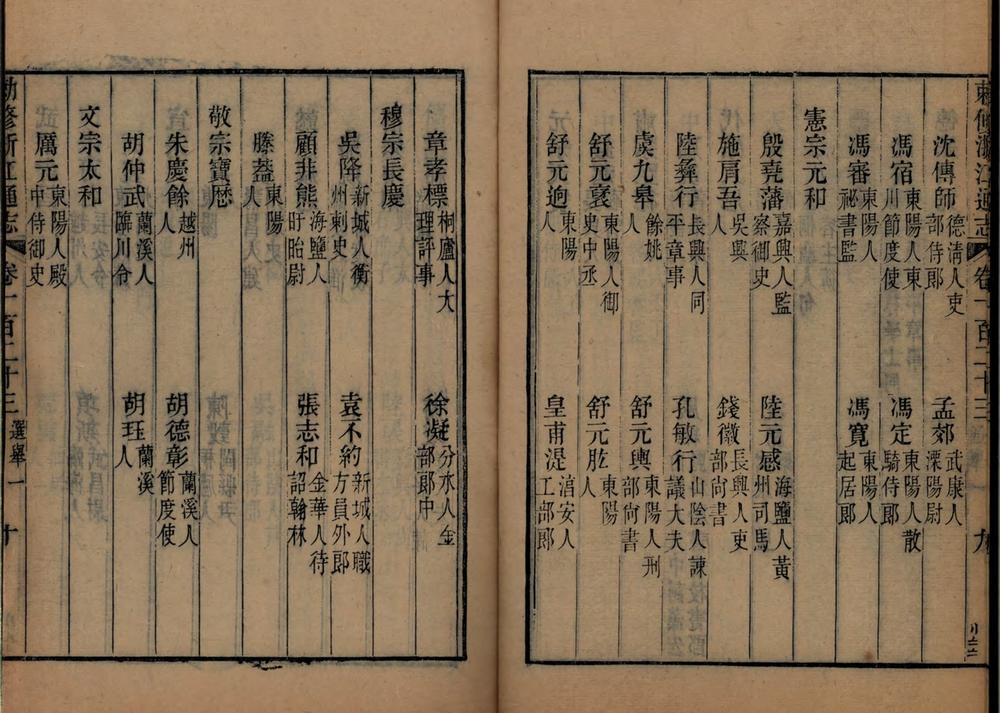 敕修浙江通志 卷一百二十三 選舉一 九
沈傳師 德清人吏部侍郎 孟郊 武康人溧陽尉
馮宿 東陽人東川節度使 馮定 東陽人散騎侍郎
馮審 東陽人秘書監 馮寬 東陽人起居郎
憲宗元和
殷堯藩 嘉興人監察御史 陸元感 海鹽人黃州司馬
施肩吾 吳興人 錢徽 長興人吏部尚書
陸彝行 長興人同平章事 孔敏行 山陰人諫議大夫
虞九皋 餘姚人 舒元輿 東陽人刑部尚書
舒元褒 東陽人御史中丞 舒元肱 東陽人
舒元迥 東陽人 皇甫湜 淯安人工部郎
章孝標 桐廬人大理評事 徐凝 分水人金部郎中
穆宗長慶
吳降 新城人衡州刺史 袁不約 新城人職方員外郎
顧非熊 海鹽人盱眙尉 張志和 金華人待詔翰林
滕蓋 東陽人
敬宗寶歷
朱慶餘 越州人 胡德彰 蘭溪人節度使
胡仲武 蘭溪人臨川令 胡珏 蘭溪人
文宗太和
厲元 東陽人殿中侍御史
敕修浙江通志 卷一百二十三 選舉一 十